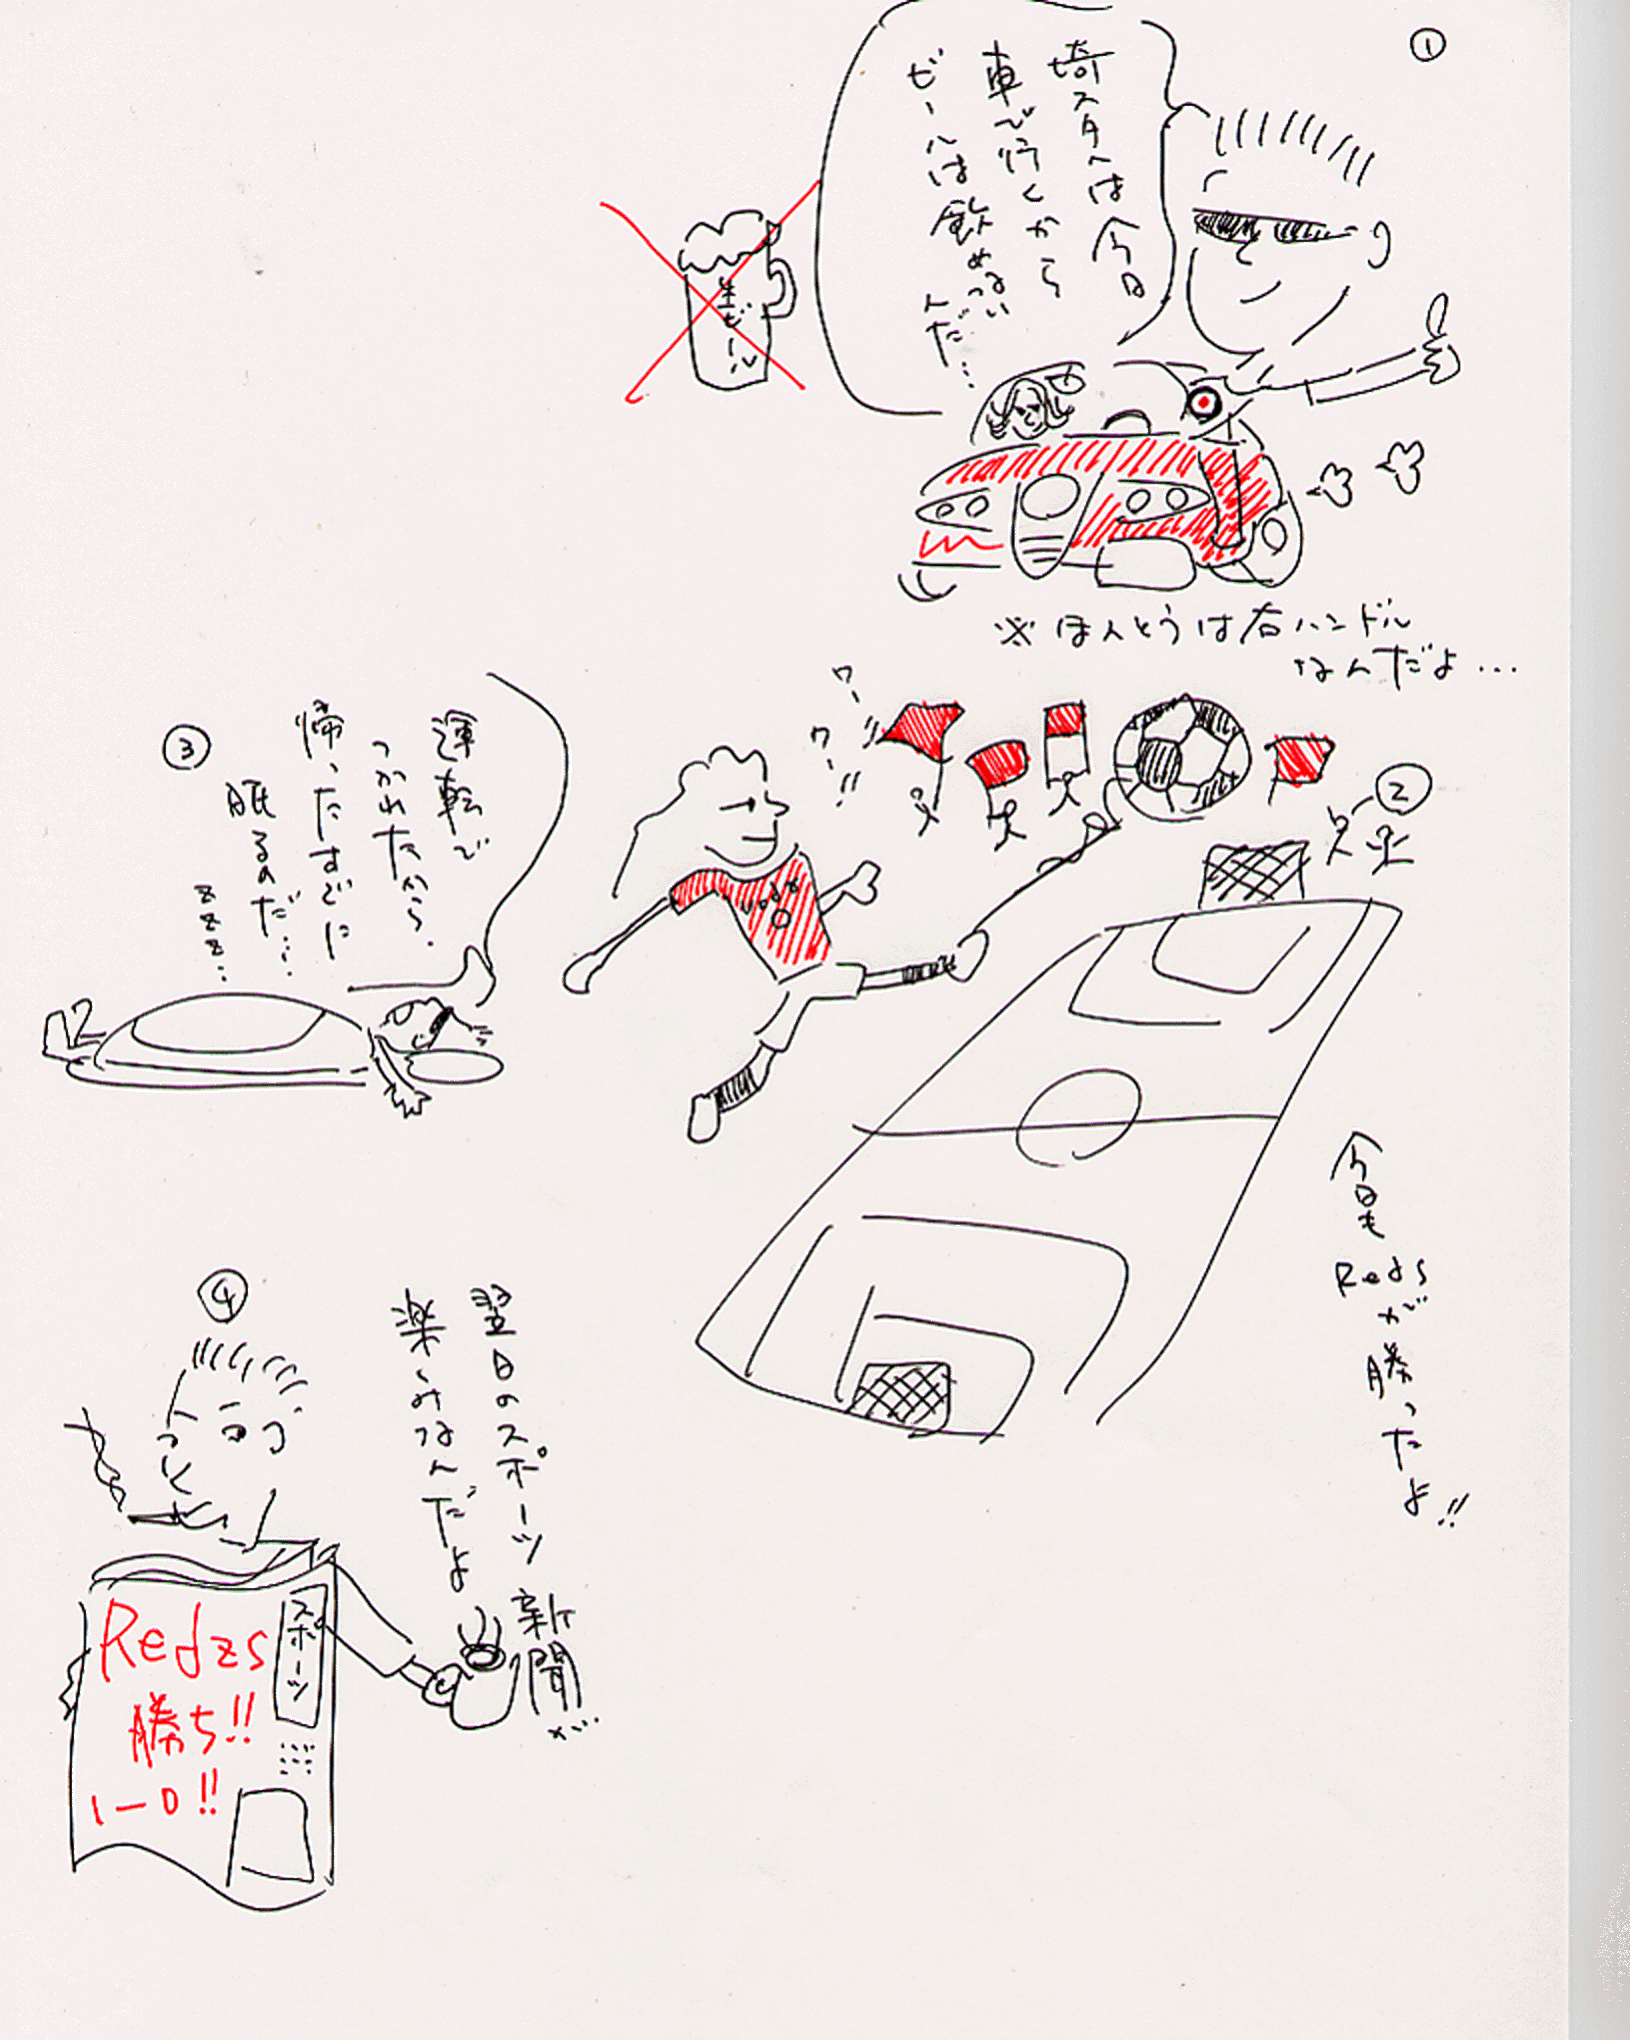 ①
埼スタへは今日
車で行くから
ビールは飲めない
んだ…
生ビール
※ほんとうは右ハンドル
なんだよ…
②
ワー!!
ワー!!
今日もRedsが勝ったよ!!
③
運転で
つかれたから、
帰ったすぐに
眠るのだ…
zzz…
④
翌日のスポーツ新聞が…
楽しみなんだよ
スポーツ
Redzs
勝ち!!
1-0!!